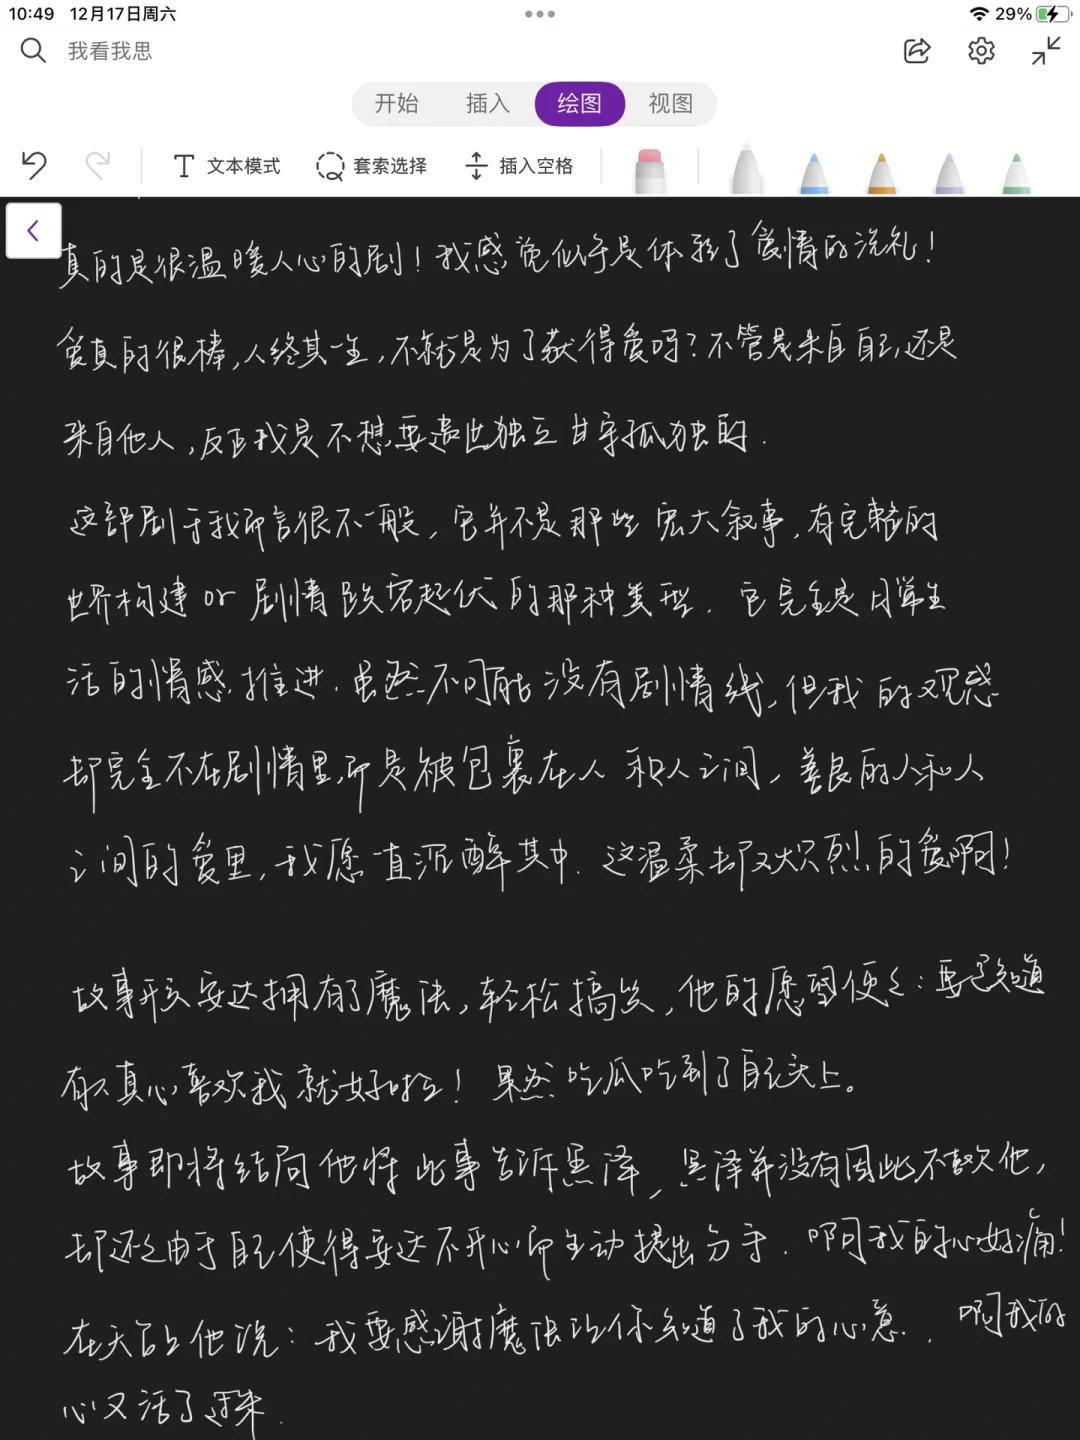 10:49 12月17日周六
29%
我看我思
开始 插入 绘图 视图
文本模式 套索选择 插入空格
真的是很温暖人心的剧！我感觉似乎是体验了爱情的洗礼！
爱真的很棒,人终其一生,不就是为了获得爱吗?不管是来自自己,还是
来自他人,反正我是不想要遗世独立甘守孤独的.
这部剧于我而言很不一般,它并不是那些宏大叙事,有完整的
世界构建 or 剧情跌宕起伏的那种类型. 它完全是日常生
活的情感推进.虽然不可能没有剧情线,但我的观感
却完全不在剧情里,而是被包裹在人和人之间,善良的人和人
之间的爱里,我愿一直沉醉其中.这温柔却又炽烈的爱啊!
故事开头安达拥有了魔法,轻松搞笑,他的愿望便是:要是知道
有人真心喜欢我就好啦! 果然吃瓜吃到了自己头上。
故事即将结局他将此事告诉黑泽,黑泽并没有因此不喜欢他,
却还是由于自己使得安达不开心而主动提出分手.啊我的心好痛!
在天台上他说:我要感谢魔法让你知道了我的心意. 啊我的
心又活了过来.